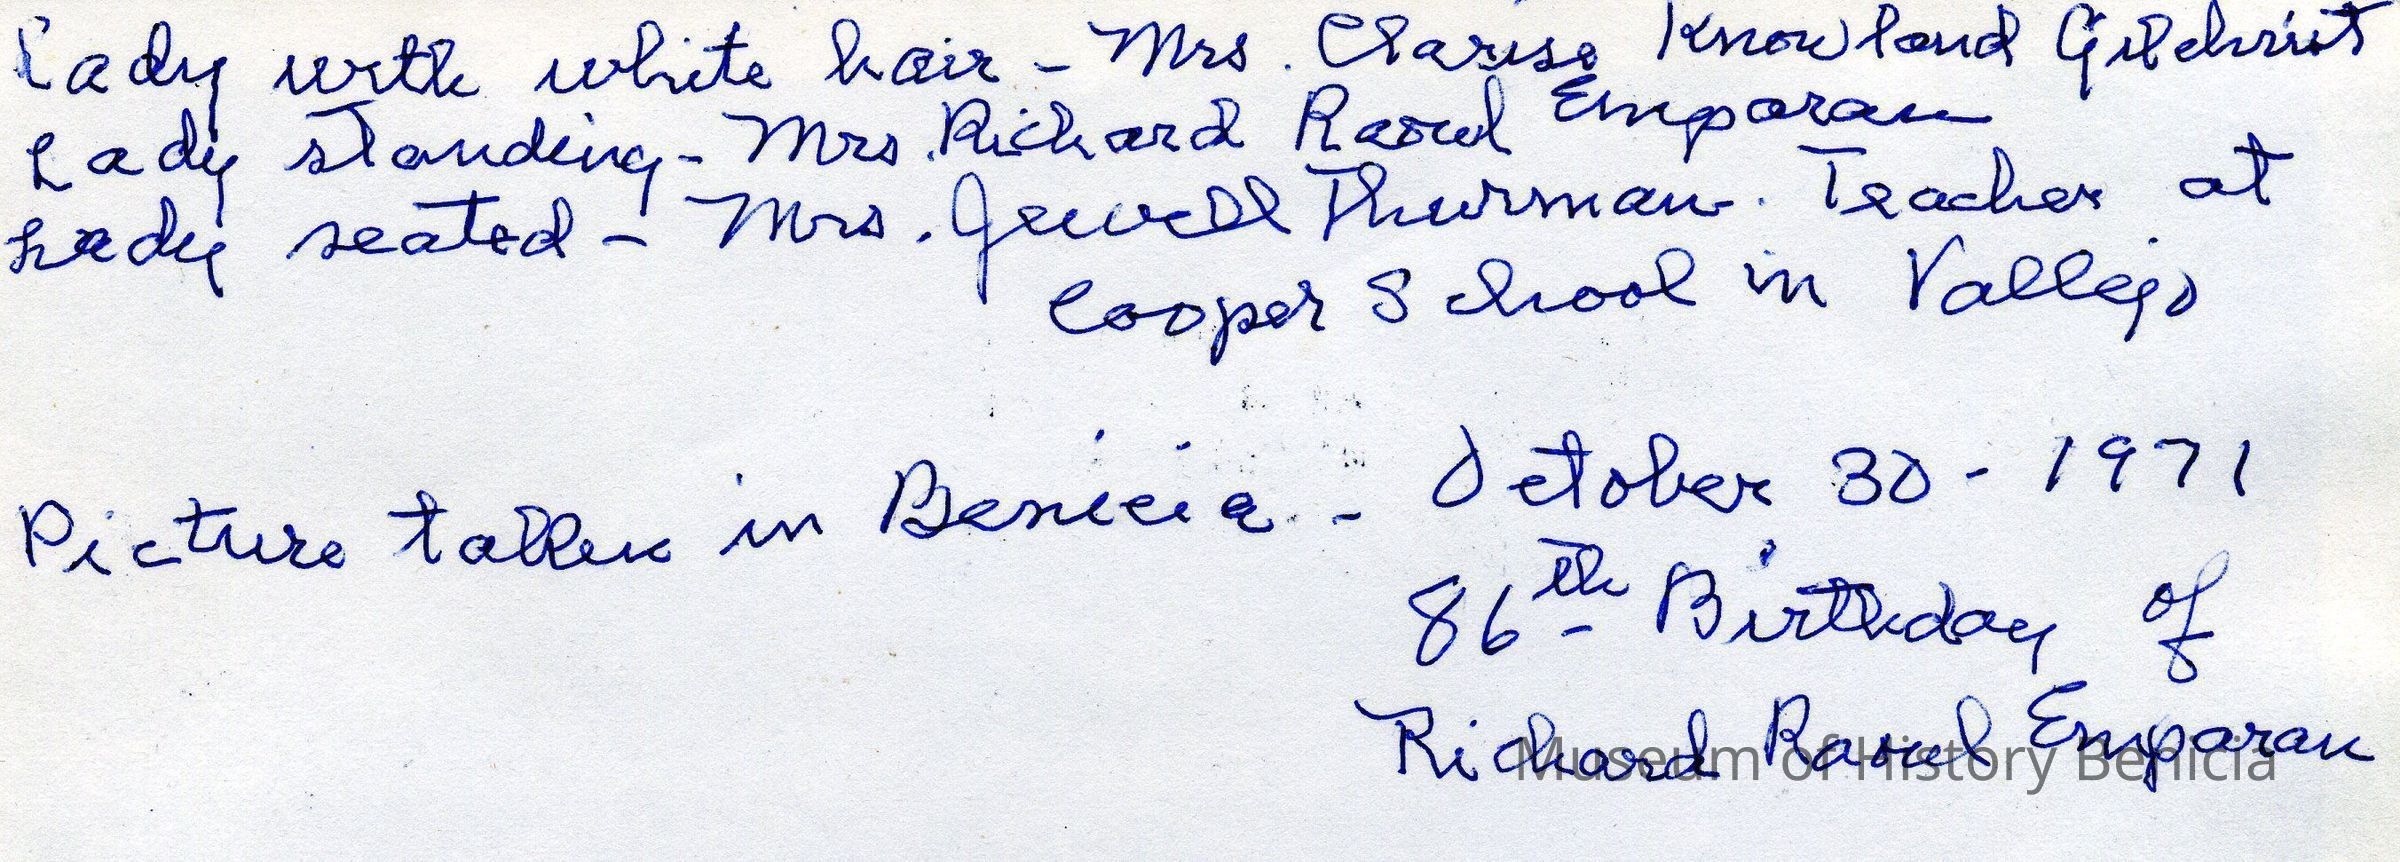 Lady with white hair - Mrs. Clarise Knowland Gilchrist
Lady standing - Mrs. Richard Raoul Emparan
Lady seated - Mrs. Jewell Thurman. Teacher at
Cooper School in Vallejo
Picture taken in Benicia - October 30 - 1971
86th - Birthday of
Richard Raoul Emparan
Museum of History Benicia